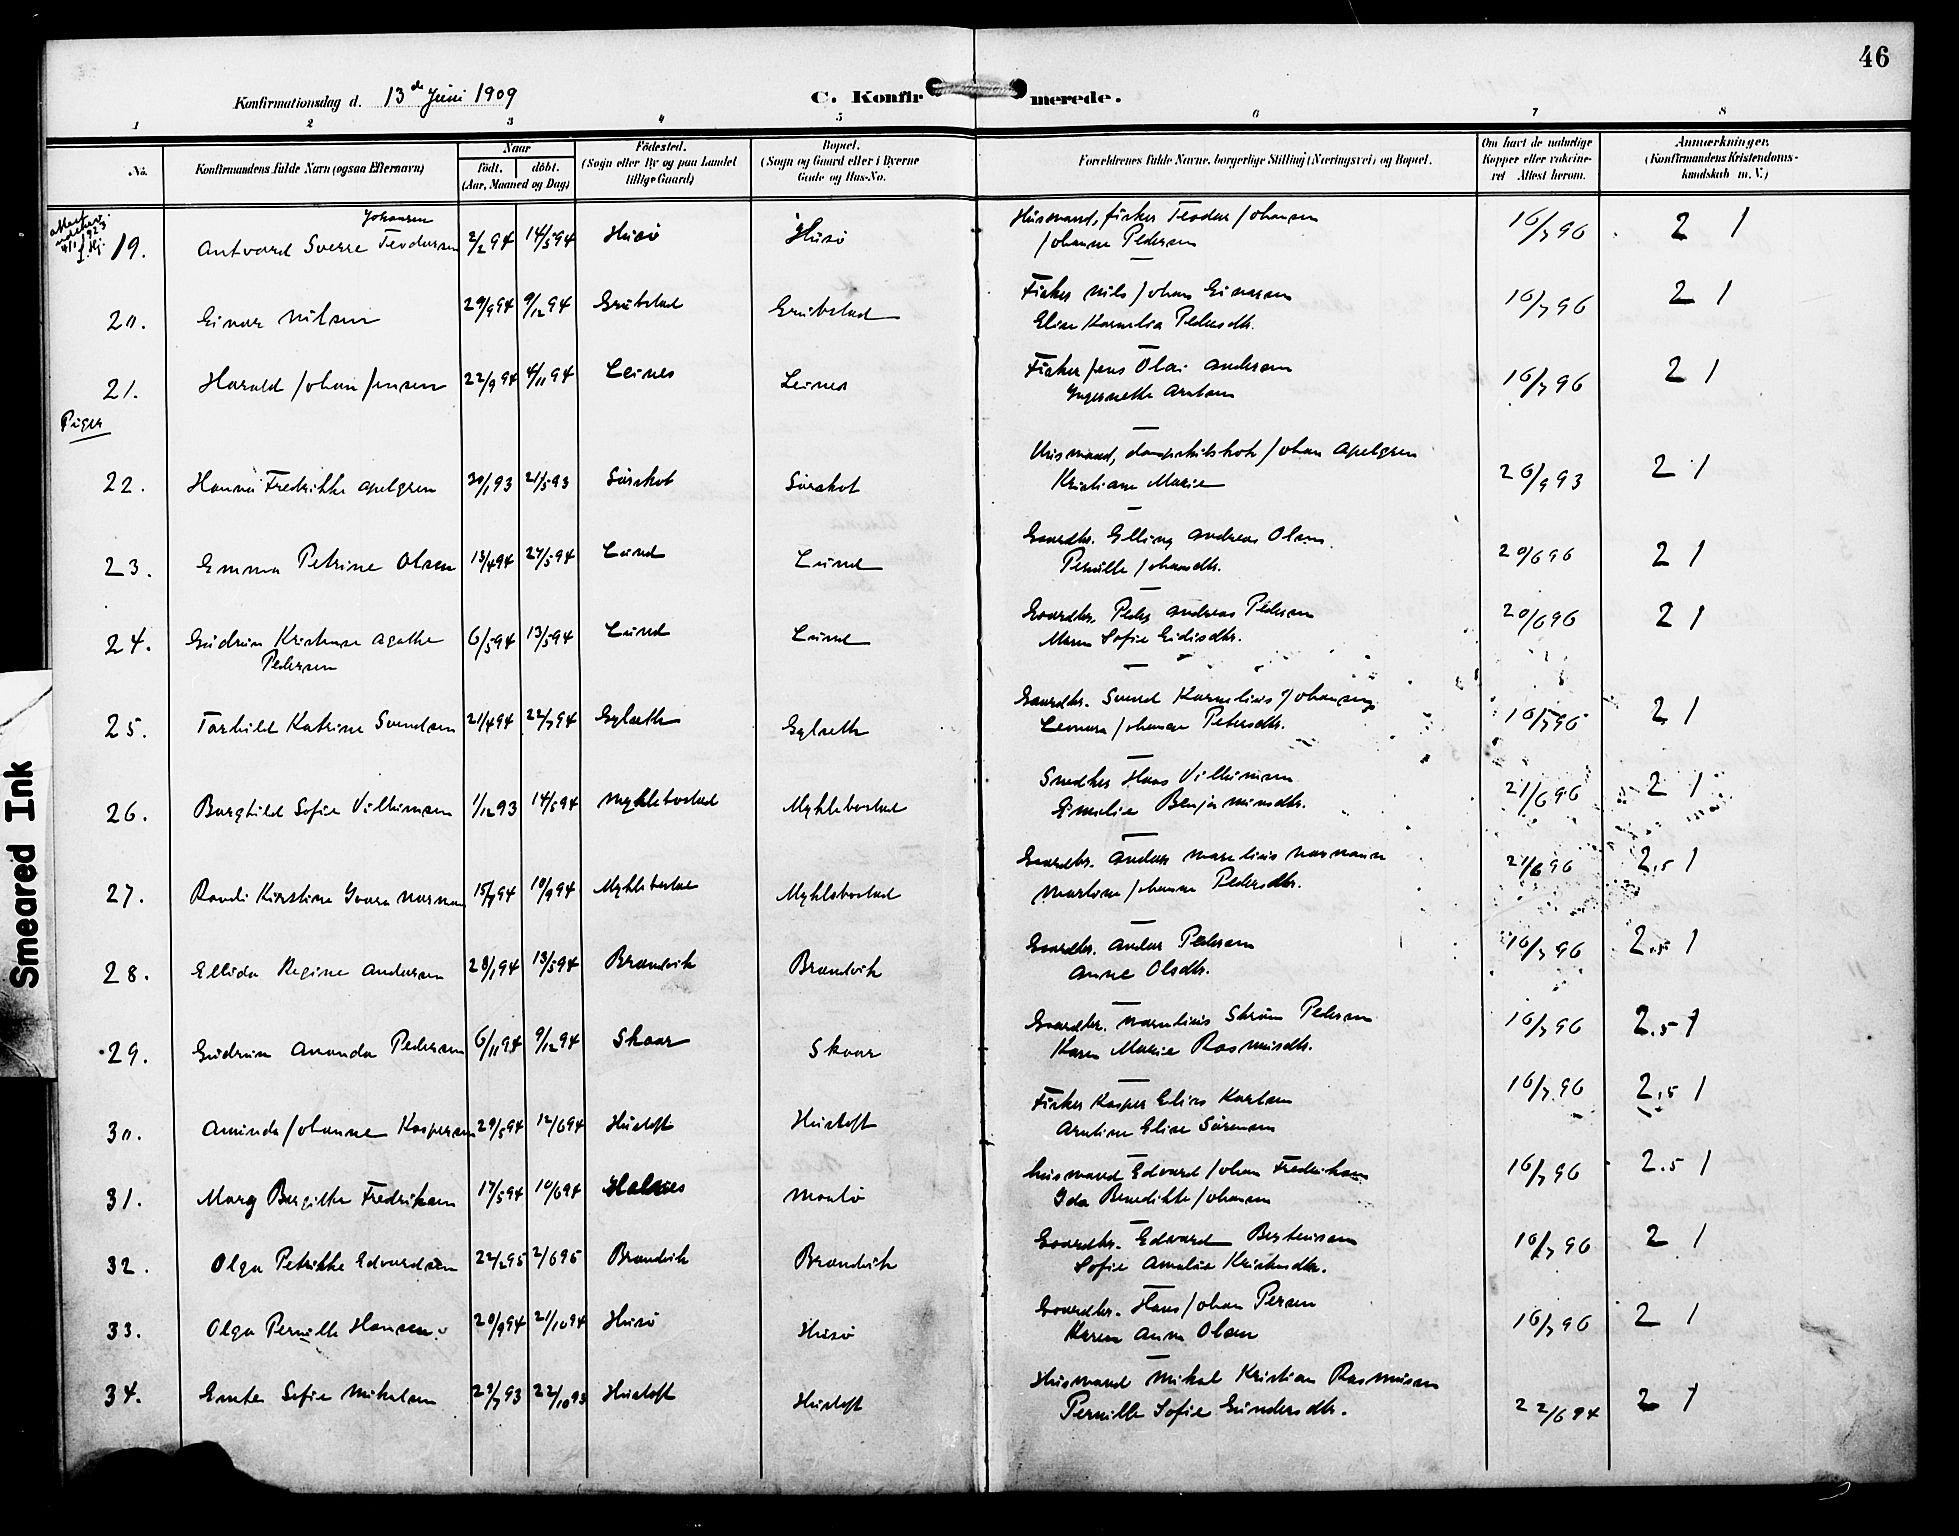 46
Konfirmationsdag d. 13de Juni 1909
C. Konfirmerede.
1 2 3 4 5 6 7 8
No. Konfirmandens fulde Navn (ogsaa Efternavn) Naar født. døbt. (Aar, Maaned og Dag) Fødested. (Sogn eller By og paa Landet tillige Gaard) Bopæl. (Sogn og Gaard eller i Byerne Gade og Hus-No. Forældrenes fulde Navne, borgerlige Stilling (Næringsvei) og Bopæl. Om havt de naturlige Kopper eller vakcineret Attest herom. Anmærkninger. (Konfirmandens Kristendomskundskab m. V.)
Johansen
19. Antvard Sverre Teodorsen 2/2 94 14/5 94 Husö Husö Husmand, fisker Teodor Johansen 16/7 96 2 1
Johanne Pedersen
20. Einar Nilsen 29/9 94 9/12 94 Grübstad Grübstad Fisker Nils Johan Einarsen 16/7 96 2 1
Elise Kornelia Pedersdtr.
21. Harald Johan Jensen 22/9 94 4/11 94 Leines Leines Fisker Jens Olai Andersen 16/7 96 2 1
Ingernette Arntsen
Piger
22. Hanna Fredrikke Apelgren 30/1 93 21/5 93 Sörskot Sörskot Husmand, Johan Apelgren 26/9 93 2 1
Kristiane Marie
23. Emma Petrine Olsen 13/4 94 27/5 94 Lund Lund Gaardbr. Elling Andreas Olsen 20/6 96 2 1
Pernille Johansdtr.
24. Gudrun Kristense Agathe 6/5 94 13/5 94 Lund Lund Gaardbr. Peder Andreas Pedersen 20/6 96 2 1
Pedersen Maren Sofie Eidisdtr.
25. Torhild Katrine Svendsen 21/4 94 22/7 94 Eglseth Eglseth Gaardbr. Svend Kornelius Johansen 16/7 96 2 1
Leonora Johanne Petersdtr.
26. Borghild Sofie Vilhimsen 1/12 93 14/5 94 Myklebostad Myklebostad Snedker Hans Vilhimsen 21/6 96 2 1
Emelie Benjaminsdtr.
27. Randi Kirstine Ivara Norman 15/7 94 10/9 94 Myklebostad Myklebostad Gaardbr. Anders Marelius Normann 21/6 96 2.5 1
Martine Johanne Pedersdtr.
28. Ellida Regine Andersen 28/1 94 13/5 94 Brændvik Brændvik Gaardbr. Anders Pedersen 16/7 96 2.5 1
Anne Olsdtr.
29. Gudrun Ananda Pedersen 6/11 94 9/12 94 Skaar Skaar Gaardbr. Kornelius Ström Pedersen 16/7 96 2.5 1
Karen Marie Rasmusdtr.
30. Aminda Johanne Kaspersen 29/5 94 12/6 94 Hustoft Hustoft Fisker Kasper Elias Karlsen 16/7 96 2.5 1
Arntine Elise Sörensen
31. Marg Bergitte Fredriksen 17/5 94 10/6 94 Halsnes Husmand Edvard Johan Fredriksen 16/7 96 2.5 1
Ida Benedikte Johansen
32. Olga Petrikke Edvardsen 22/2 95 2/6 95 Brændvik Brændvik Gaardbr. Edvard Berteussen 16/7 96 2 1
Sofie Amalie Kristensdtr.
33. Olga Pernille Hansen 20/9 94 21/10 94 Husö Husö Gaardbr. Hans Johan Persen 16/7 96 2 1
Karen Anna Olsen
34. Sofie Mikalsen 23/7 93 22/10 93 Hustoft Hustoft Husmand Mikal Kristian Rasmusen 22/6 94 2 1
Pernille Sofie Gundersdtr.
Smeared Ink